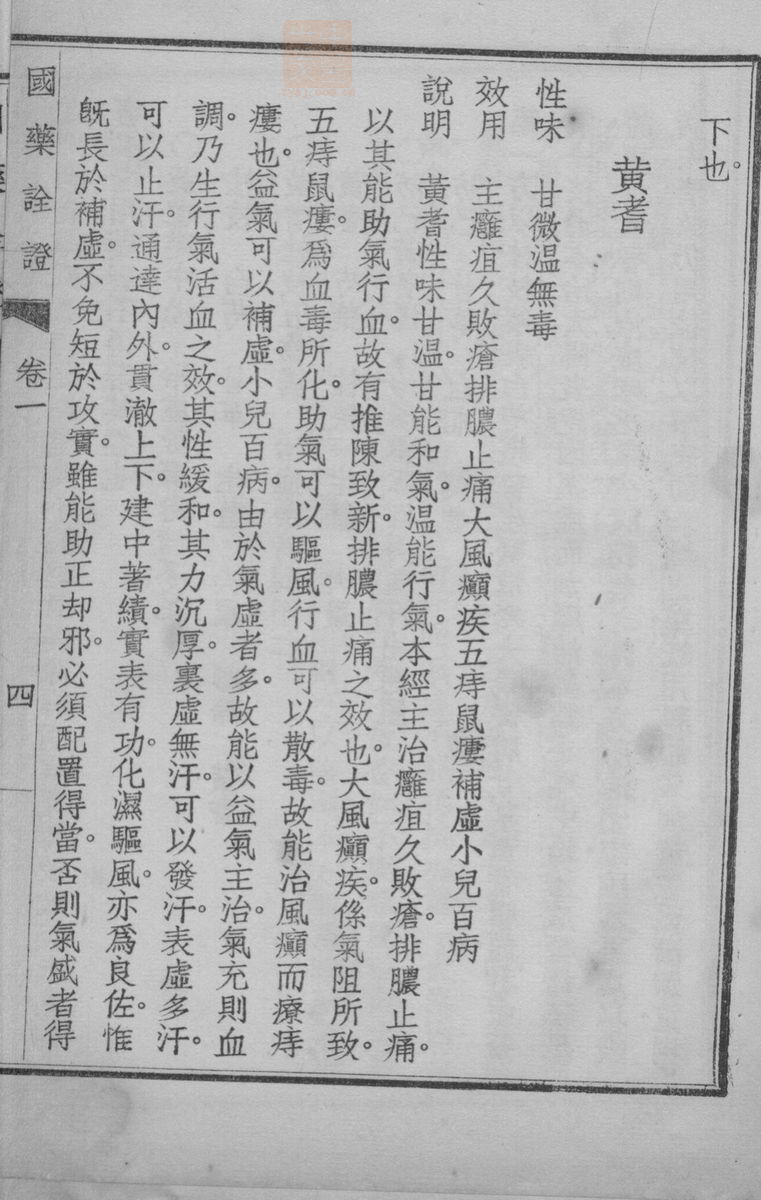 下也。
黃耆
性味　甘微温無毒
效用　主癰疽久敗瘡排膿止痛大風癲疾五痔鼠瘻補虛小兒百病
說明　黃耆性味甘温。甘能和氣。温能行氣。本經主治癰疽久敗瘡。排膿止痛。
以其能助氣行血。故有推陳致新。排膿止痛之效也。大風癲疾。係氣阻所致。
五痔鼠瘻。爲血毒所化。助氣可以驅風。行血可以散毒。故能治風癲而療痔
瘻也。益氣可以補虛。小兒百病。由於氣虛者多。故能以益氣主治。氣充則血
調。乃生行氣活血之效。其性緩和。其力沉厚。裏虛無汗。可以發汗。表虛多汗。
可以止汗。通達內外。貫澈上下。建中著績。實表有功。化濕驅風。亦爲良佐。惟
旣長於補虛。不免短於攻實。雖能助正却邪。必須配置得當。否則氣盛者得
國藥詮證　卷一　四